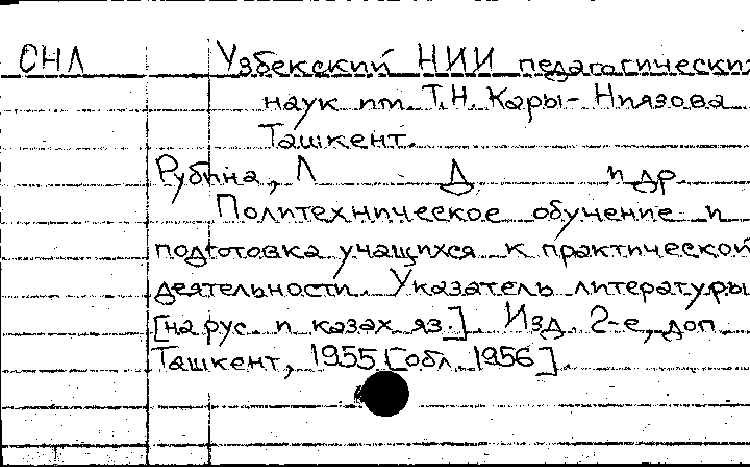 СНЛ Узбекский НИИ педагогических
наук им. Т.Н. Кары-Ниязова
Ташкент.
Рубина, Л Д и др.
Политехническое обучение и
подготовка учащихся к практической
деятельности. Указатель литературы
[на рус. и казах яз.]. Изд. 2-е, доп
Ташкент, 1955 [обл. 1956].